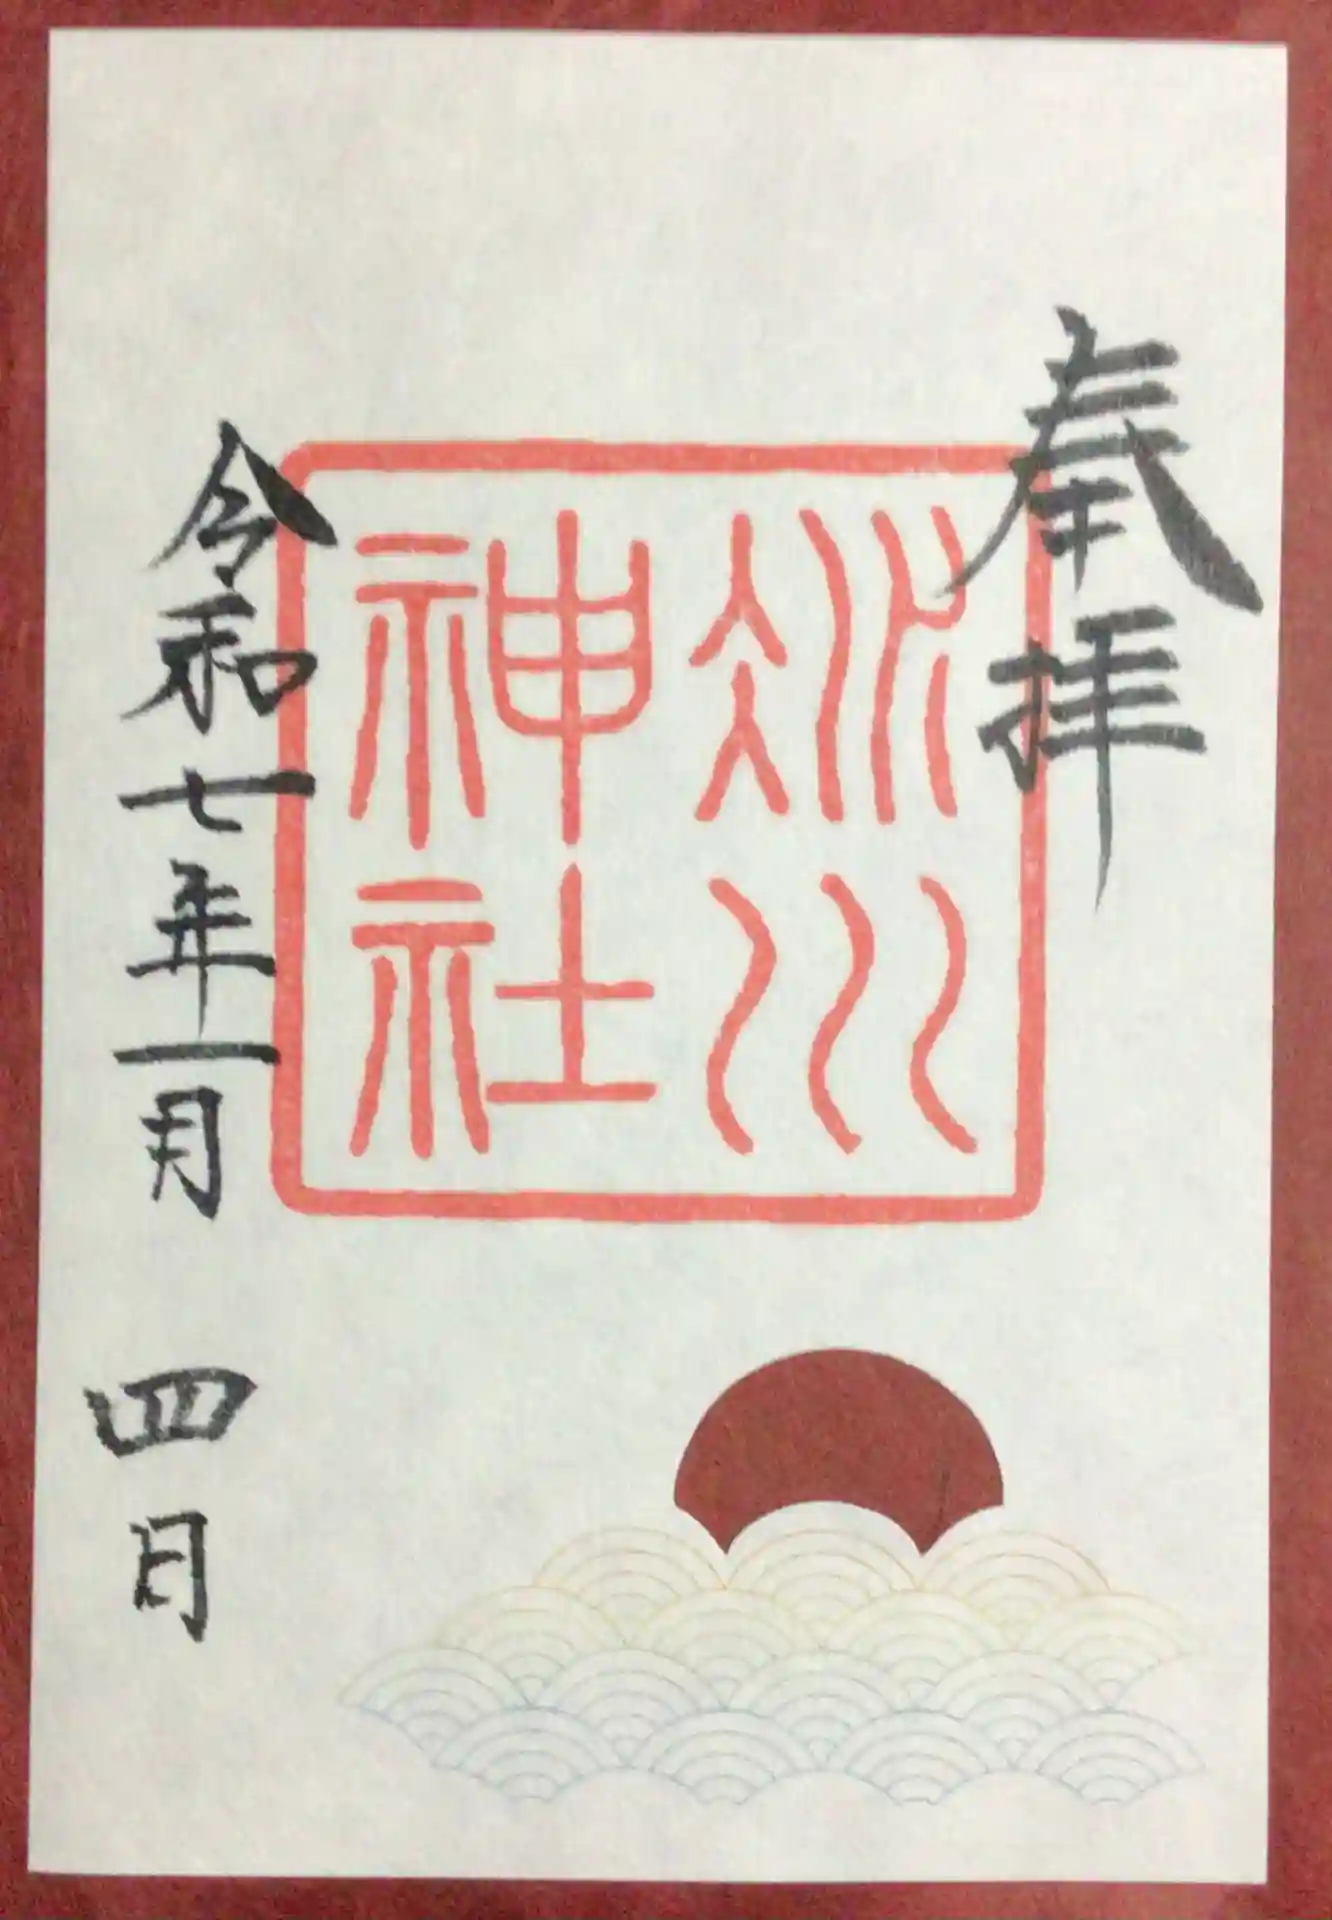 奉拝
冰川
神社
令和七年一月四日